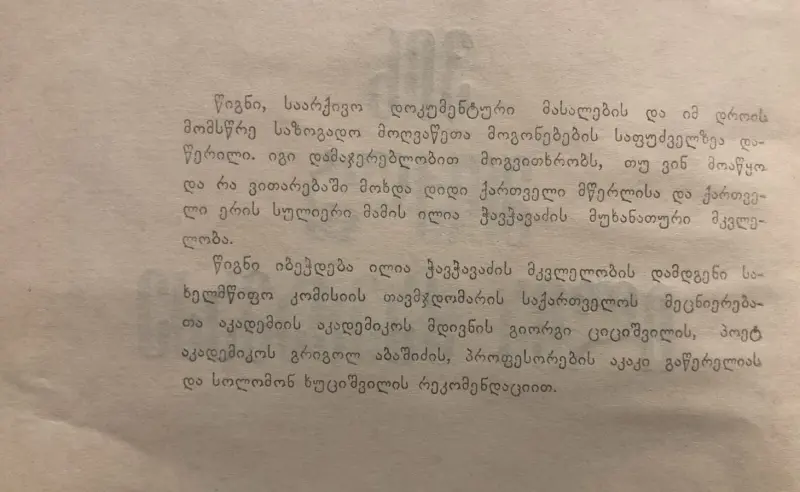 წიგნი, საარქივო დოკუმენტური მასალების და იმ დროის
მომსწრე საზოგადო მოღვაწეთა მოგონებების საფუძველზეა და-
წერილი. იგი დამაჯერებლობით მოგვითხრობს, თუ ვინ მოაწყო
და რა ვითარებაში მოხდა დიდი ქართველი მწერლისა და ქართვე-
ლი ერის სულიერი მამის ილია ჭავჭავაძის მუხანათური მკვლე-
ლობა.
წიგნი იბეჭდება ილია ჭავჭავაძის მკვლელობის დამდგენი სა-
ხელმწიფო კომისიის თავმჯდომარის საქართველოს მეცნიერება-
თა აკადემიის აკადემიკოს მდივნის გიორგი ციციშვილის, პოეტ
აკადემიკოს გრიგოლ აბაშიძის, პროფესორების აკაკი გაწერელიას
და სოლომონ ხუციშვილის რეკომენდაციით.